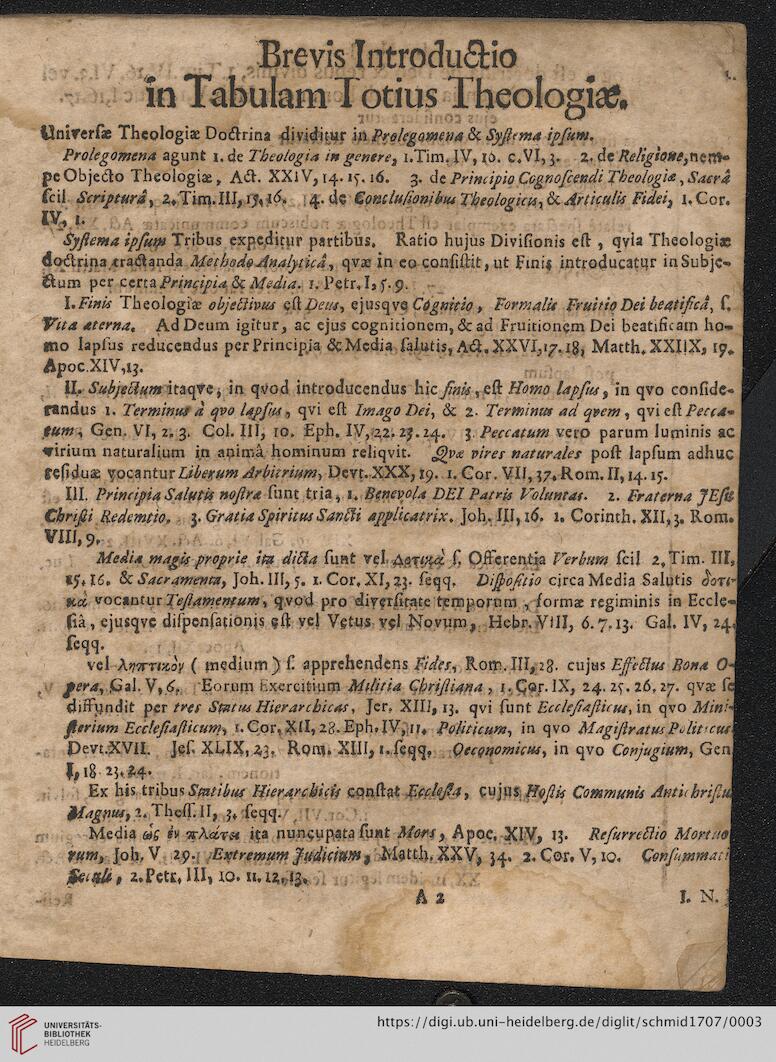 Brevis Introductio
in Tabulam Totius Theologiæ.
Universæ Theologiæ Doctrina dividitur in Prolegomena & Syſtema ipſum.
Prolegomena agunt 1. de Theologia in genere, 1. Tim. IV, 16. c. VI, 3. 2. de Religione, nem-
pe Objecto Theologiæ, Act. XXIV, 14. 15. 16. 3. de Principio Cognoſcendi Theologiæ, Sacrâ
ſcil. Scripturâ, 2. Tim. III, 15. 16. 4. de Concluſionibus Theologicis, & Articulis Fidei, 1. Cor.
IV, 1.
Syſtema ipſum Tribus expeditur partibus. Ratio hujus Diviſionis eſt, qvia Theologiæ
doctrina tractanda Methodo Analyticâ, qvæ in eo conſiſtit, ut Finis introducatur in Subje-
ctum per certa Principia & Media. 1. Petr. I, 5. 9.
I. Finis Theologiæ objectivus eſt Deus, ejusqve Cognitio, Formalis Fruitio Dei beatificâ, ſ.
Vita æterna. Ad Deum igitur, ac ejus cognitionem, & ad Fruitionem Dei beatificam ho-
mo lapſus reducendus per Principia & Media ſalutis, Act. XXVI, 17. 18. Matth. XXIIX, 19.
Apoc. XIV, 13.
II. Subjectum itaqve, in qvod introducendus hic finis, eſt Homo lapſus, in qvo conſide-
randus 1. Terminus à qvo lapſus, qvi eſt Imago Dei, & 2. Terminus ad qvem, qvi eſt Pecca-
tum, Gen. VI, 2. 3. Col. III, 10. Eph. IV, 22. 23. 24. 3 Peccatum vero parum luminis ac
virium naturalium in animâ hominum reliqvit. Qvæ vires naturales poſt lapſum adhuc
reſiduæ vocantur Liberum Arbitrium, Devt. XXX, 19. 1. Cor. VII, 37. Rom. II, 14. 15.
III. Principia Salutis noſtræ ſunt tria, 1. Benevola DEI Patris Voluntas. 2. Fraterna JEſu
Chriſti Redemtio. 3. Gratia Spiritus Sancti applicatrix. Joh. III, 16. 1. Corinth. XII, 3. Rom.
VIII, 9.
Media magis proprie ita dicta ſunt vel Δοτικὰ ſ. Offerentia Verbum ſcil 2. Tim. III,
15. 16. & Sacramenta, Joh. III, 5. 1. Cor. XI, 23. ſeqq. Diſpoſitio circa Media Salutis δοτι-
κὰ vocantur Teſtamentum, qvod pro diverſitate temporum, formæ regiminis in Eccle-
ſiâ, ejusqve diſpenſationis eſt vel Vetus vel Novum, Hebr. VIII, 6. 7. 13. Gal. IV, 24.
ſeqq.
vel ληπτικὸν (medium) ſ. apprehendens Fides, Rom. III, 28. cujus Effectus Bona O-
pera, Gal. V, 6. Eorum Exercitium Militia Chriſtiana, 1. Cor. IX, 24. 25. 26. 27. qvæ ſe
diffundit per tres Status Hierarchicos, Jer. XIII, 13. qvi ſunt Eccleſiaſticus, in qvo Mini-
ſterium Eccleſiaſticum, 1. Cor. XII, 28. Eph. IV, 11. Politicum, in qvo Magiſtratus Politicus
Devt. XVII. Jeſ. XLIX, 23. Rom. XIII, 1. ſeqq. Oeconomicus, in qvo Conjugium, Gen
I, 18. 23. 24.
Ex his tribus Statibus Hierarchicis conſtat Eccleſia, cujus Hoſtis Communis Antichriſtu
Magnus, 2. Theſſ. II, 3. ſeqq.
Media ὡς ἐν πλάτει ita nuncupata ſunt Mors, Apoc. XIV, 13. Reſurrectio Mortuo
rum, Joh. V. 29. Extremum Judicium, Matth. XXV, 34. 2. Cor. V, 10. Conſummati
Seculi, 2. Petr. III, 10. 11. 12. 13.
A 2
I. N.
UNIVERSITÄTS-
BIBLIOTHEK
HEIDELBERG
https://digi.ub.uni-heidelberg.de/diglit/schmid1707/0003